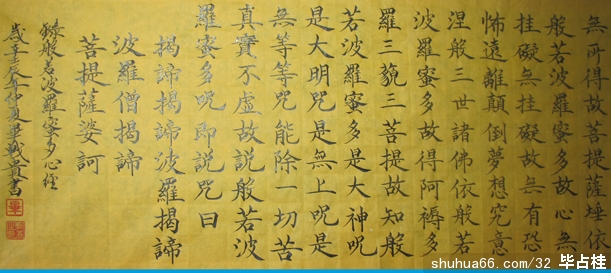 無所得故菩提薩埵依
般若波羅蜜多故心無
挂礙無挂礙故無有恐
怖遠離顛倒夢想究竟
涅般三世諸佛依般若
波羅蜜多故得阿褥多
羅三藐三菩提故知般
若波羅蜜多是大神呪
是大明咒是無上呪是
無等等咒能除一切苦
真實不虛故説般若波
羅蜜多呪即説咒曰
揭諦揭諦波羅揭諦
波羅僧揭諦
菩提薩婆訶
錄般若波羅蜜多心經
歲壬辰年仲夏畢戰貴書
shuhua66.com/32 毕占桂